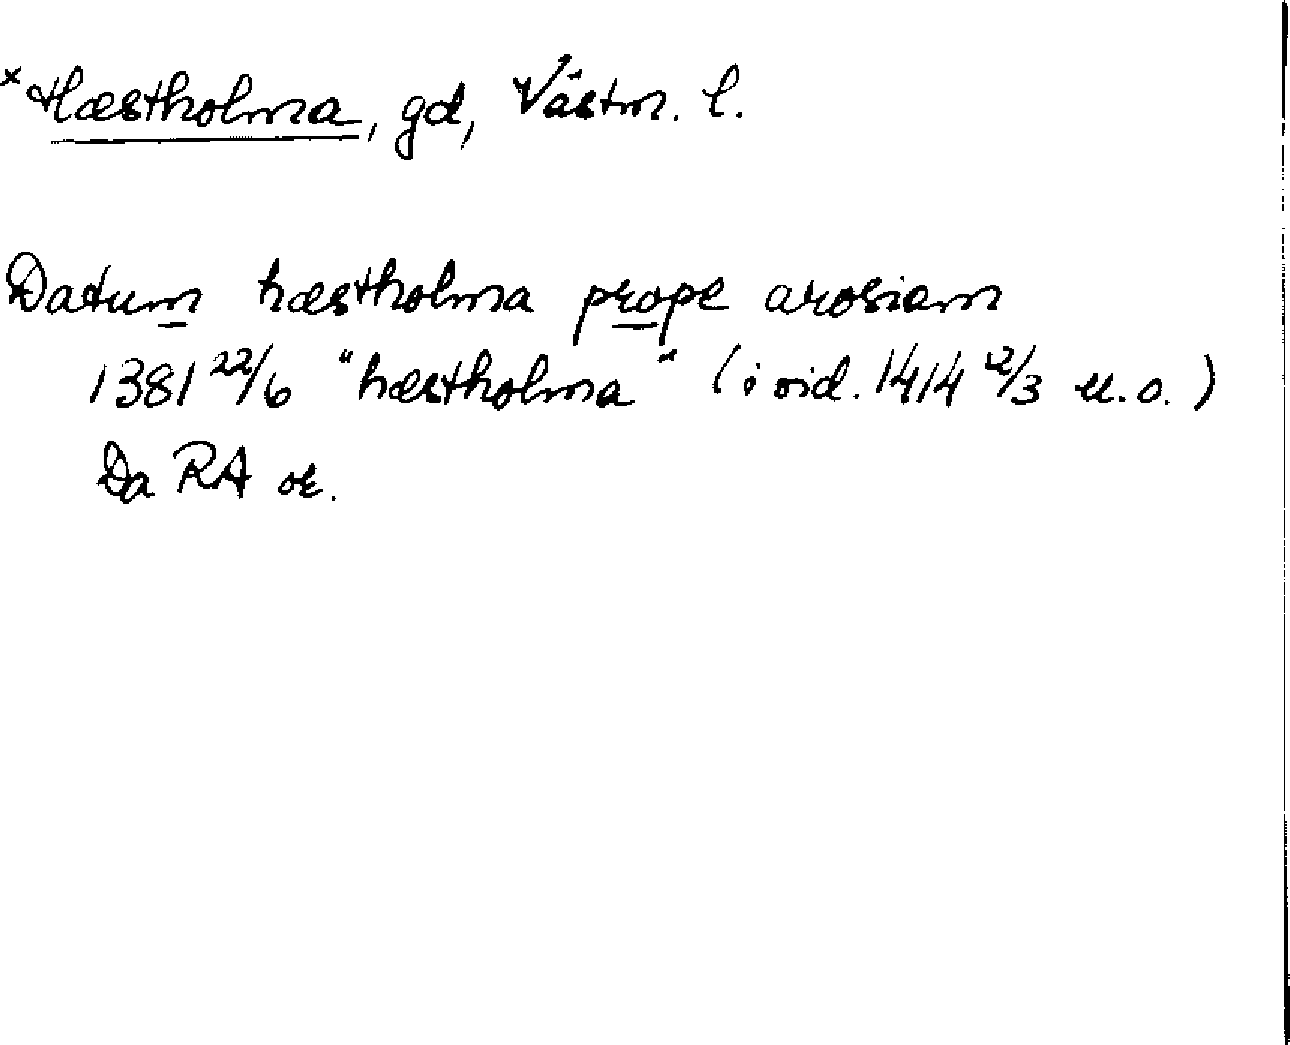 ×Hæstholma, gd, Västm. l.
Datum hæstholma prope arosiam
1381 22/6 "hæstholma" (i vid. 1414 2/3 u.o.)
Da RA or.